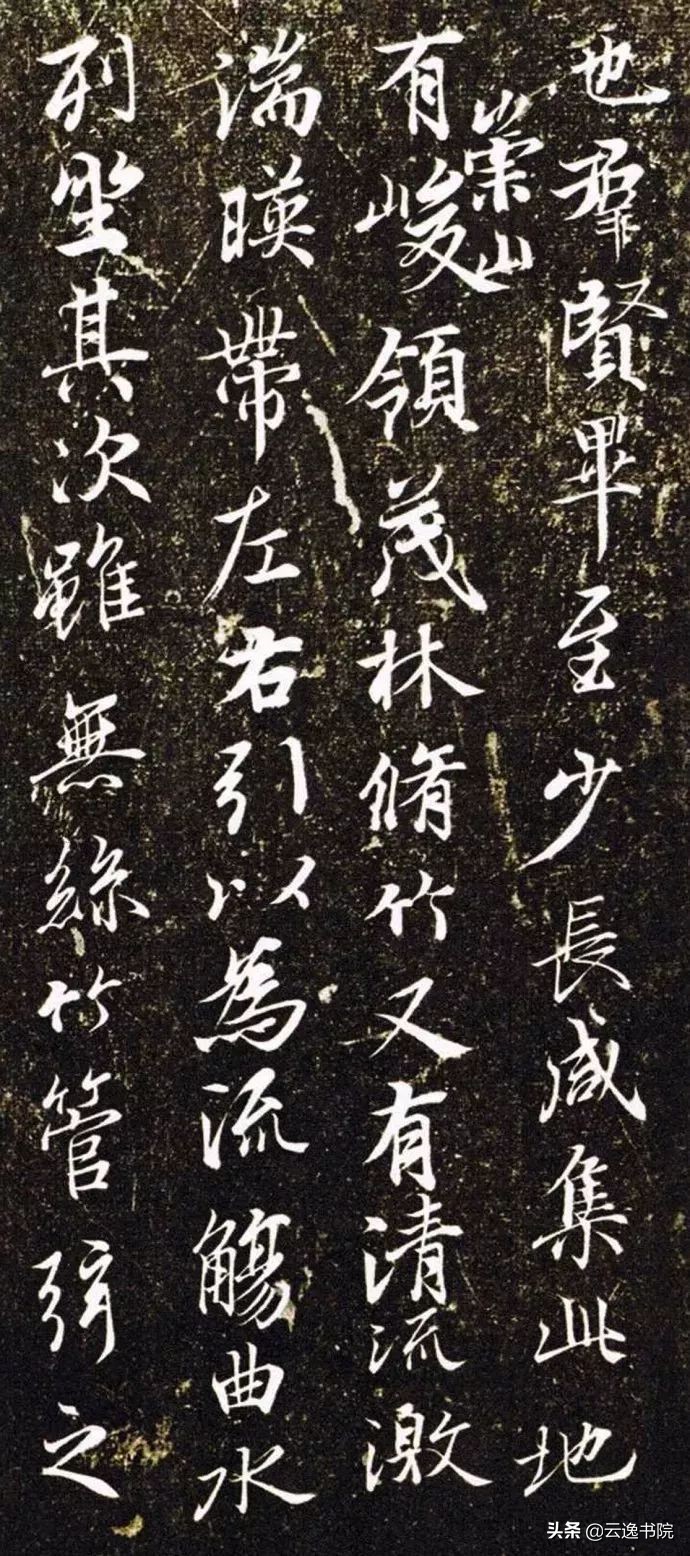 也羣賢畢至少長咸集此地
有崇山峻領茂林脩竹又有清流激
湍暎帶左右引以為流觴曲水
列坐其次雖無絲竹管弦之
头条 @云逸书院